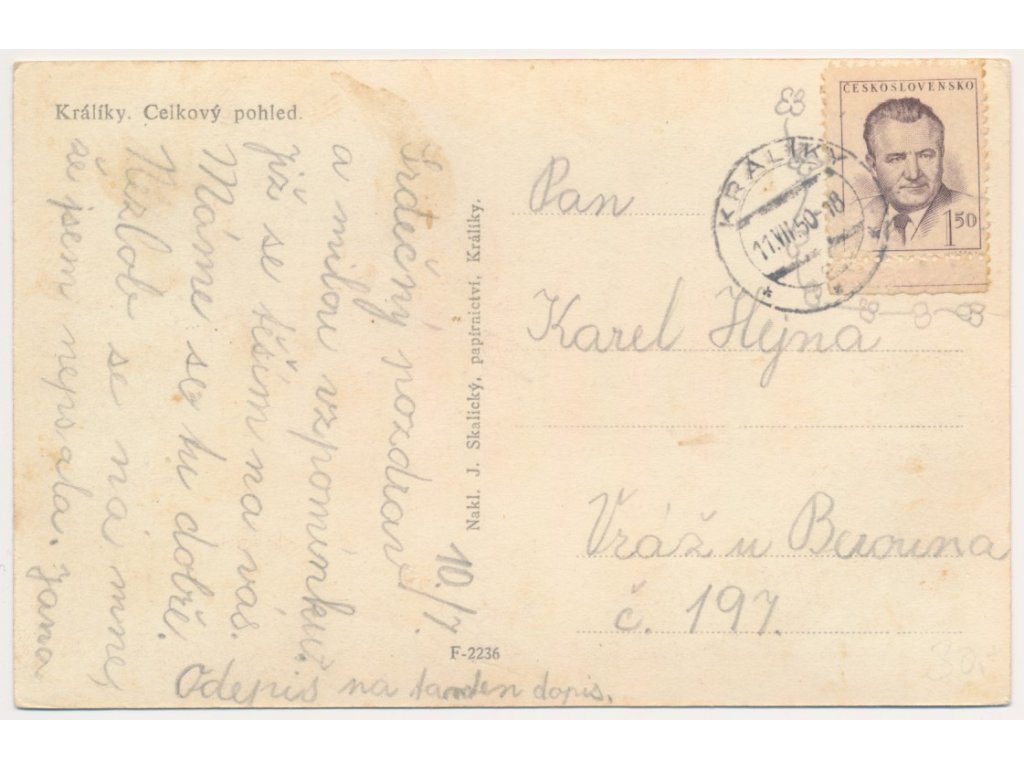 Králíky. Celkový pohled.
Srdečný pozdrav
a milou vzpomínku.
již se těším na vás.
Máme se tu dobře.
Nezlob se na mne,
že jsem nepsala. Jana
10./7
Odepis na tamten dopis.
Nakl. J. Skalický, papírnictví, Králíky.
F-2236
ČESKOSLOVENSKO
1 50
KRÁLÍKY
11.VII.50-18
Pan
Karel Hejna
Vráž u Berouna
č. 197.